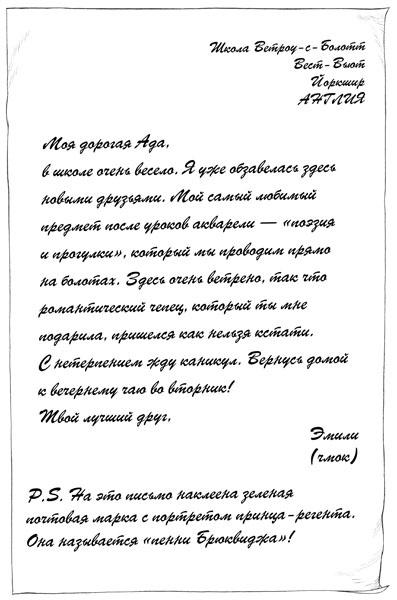 Школа Ветроу-с-Болотт
Вест-Вьют
Йоркшир
АНГЛИЯ
Моя дорогая Ада,
в школе очень весело. Я уже обзавелась здесь
новыми друзьями. Мой самый любимый
предмет после уроков акварели — «поэзия
и прогулки», который мы проводим прямо
на болотах. Здесь очень ветрено, так что
романтический чепец, который ты мне
подарила, пришелся как нельзя кстати.
С нетерпением жду каникул. Вернусь домой
к вечернему чаю во вторник!
Твой лучший друг,
Эмили
(чмок)
P.S. На это письмо наклеена зеленая
почтовая марка с портретом принца-регента.
Она называется «пенни Брюквиджа»!